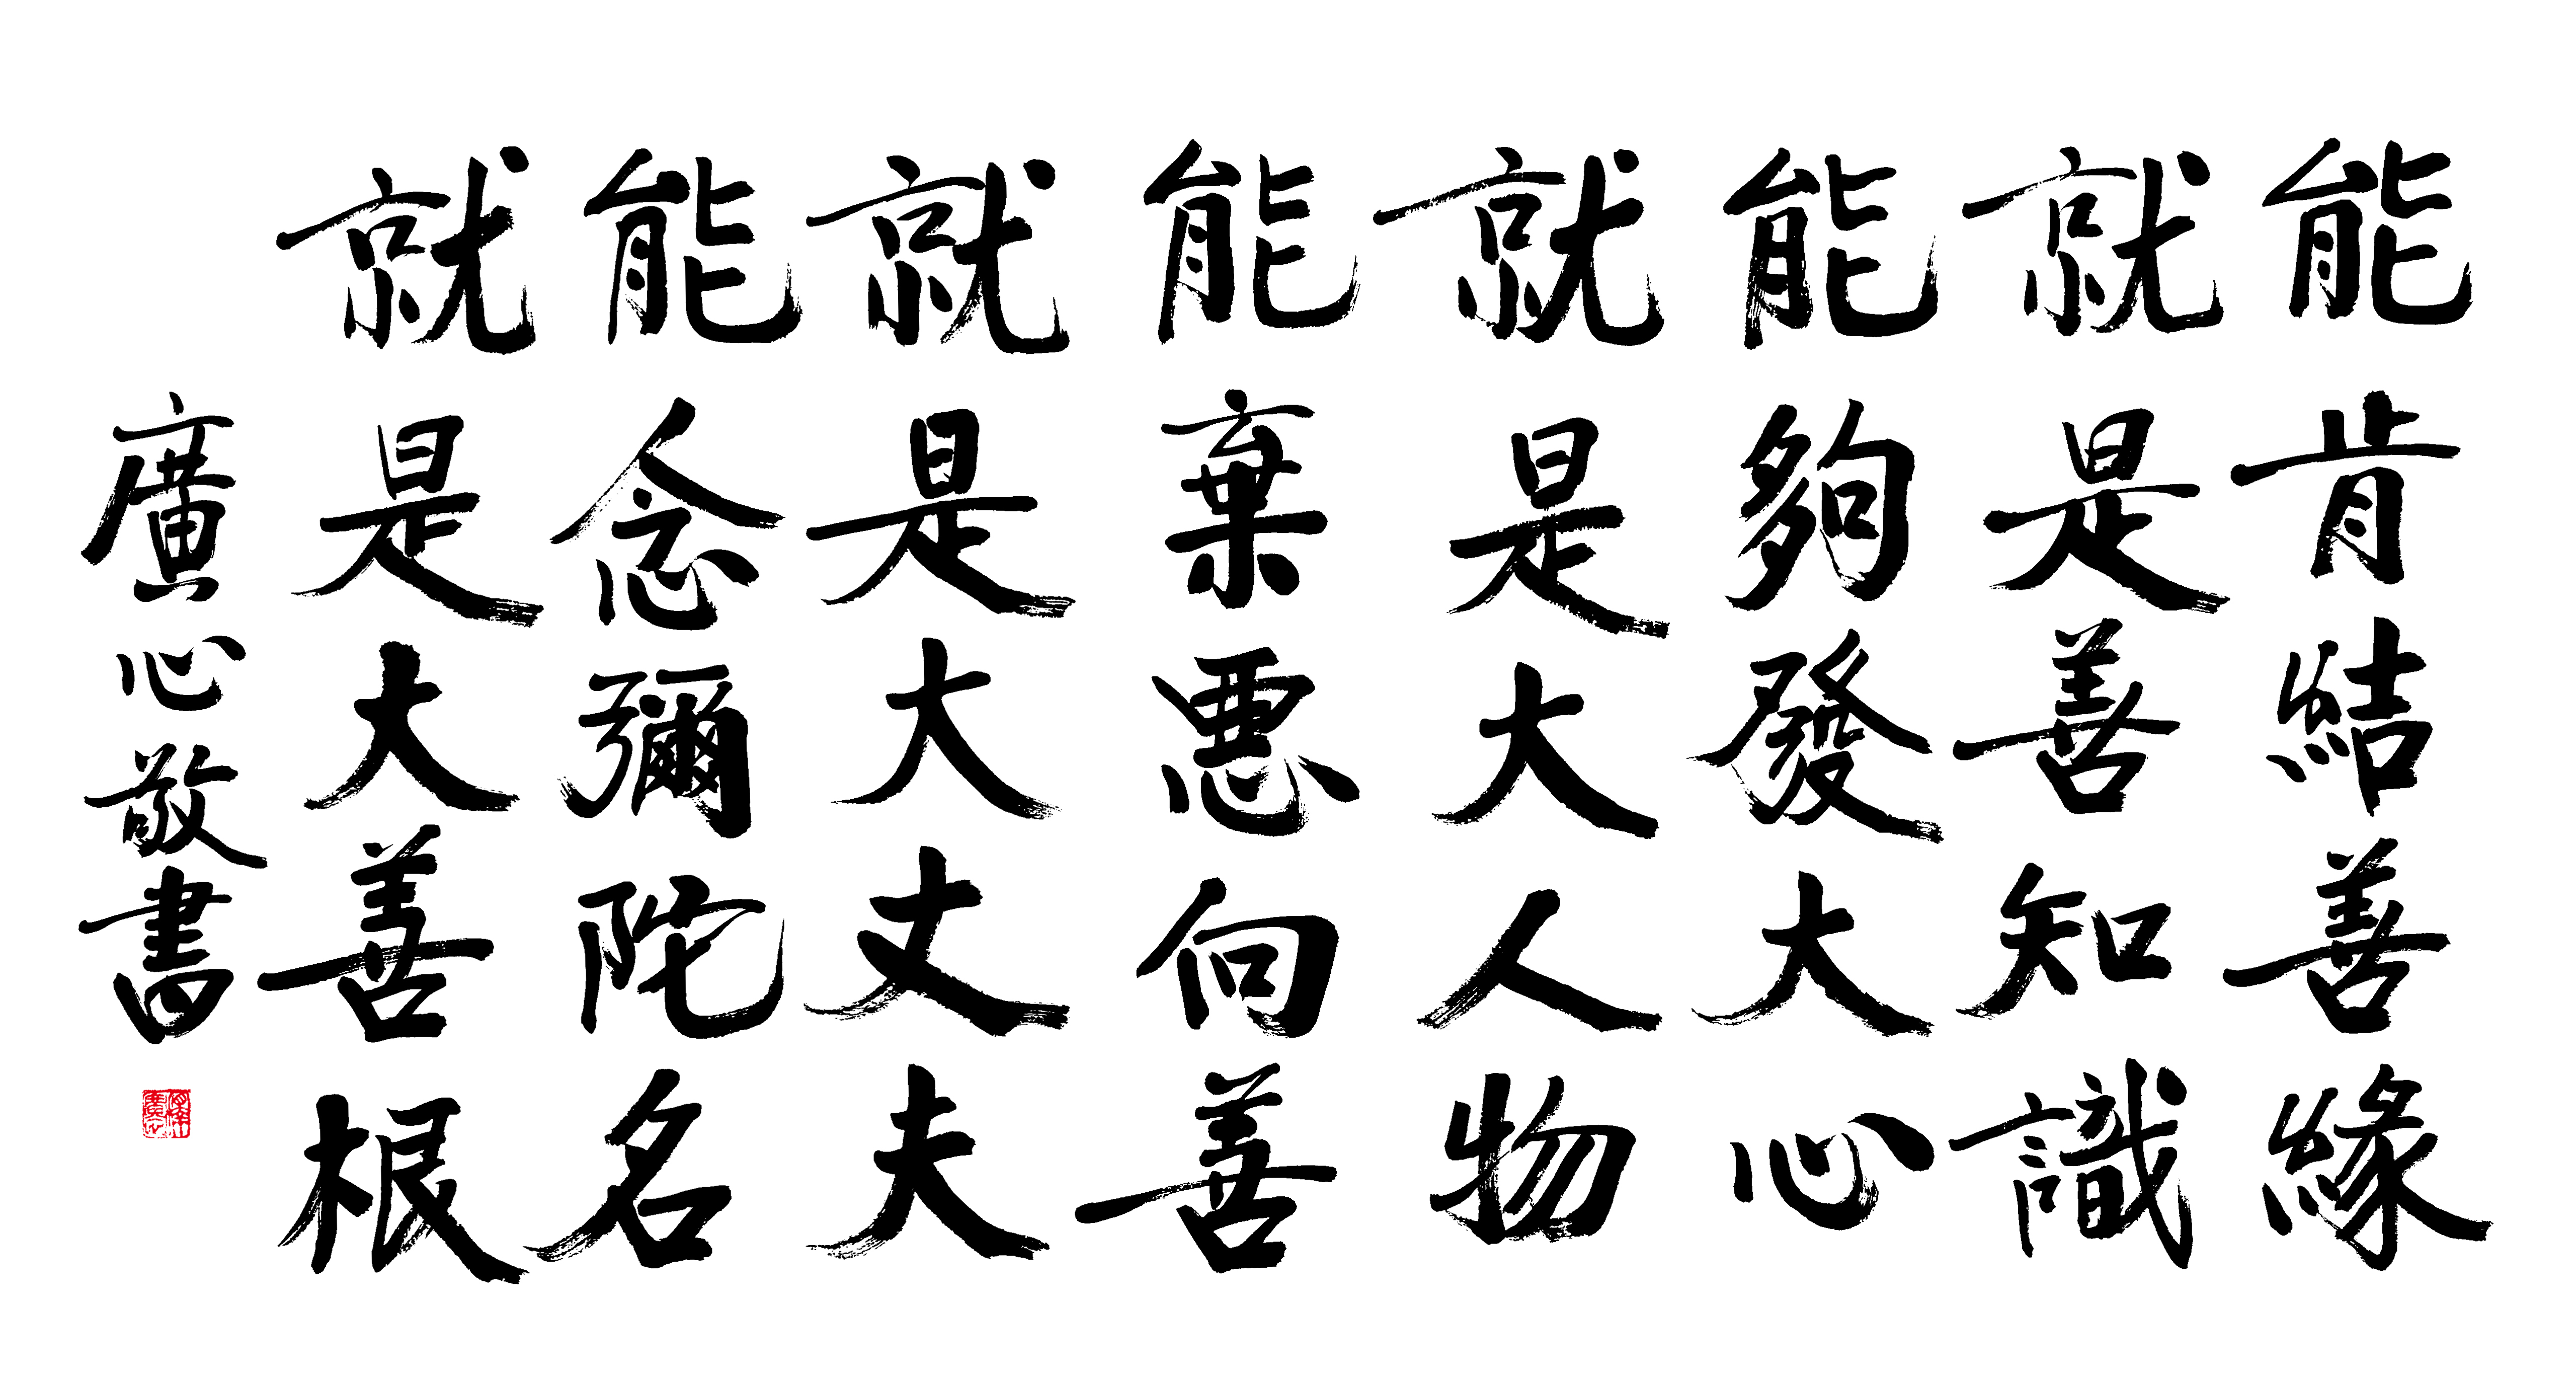 能肯結善緣
就是善知識
能夠發大心
就是大人物
能棄惡向善
就是大丈夫
能念彌陀名
就是大善根
廣心敬書